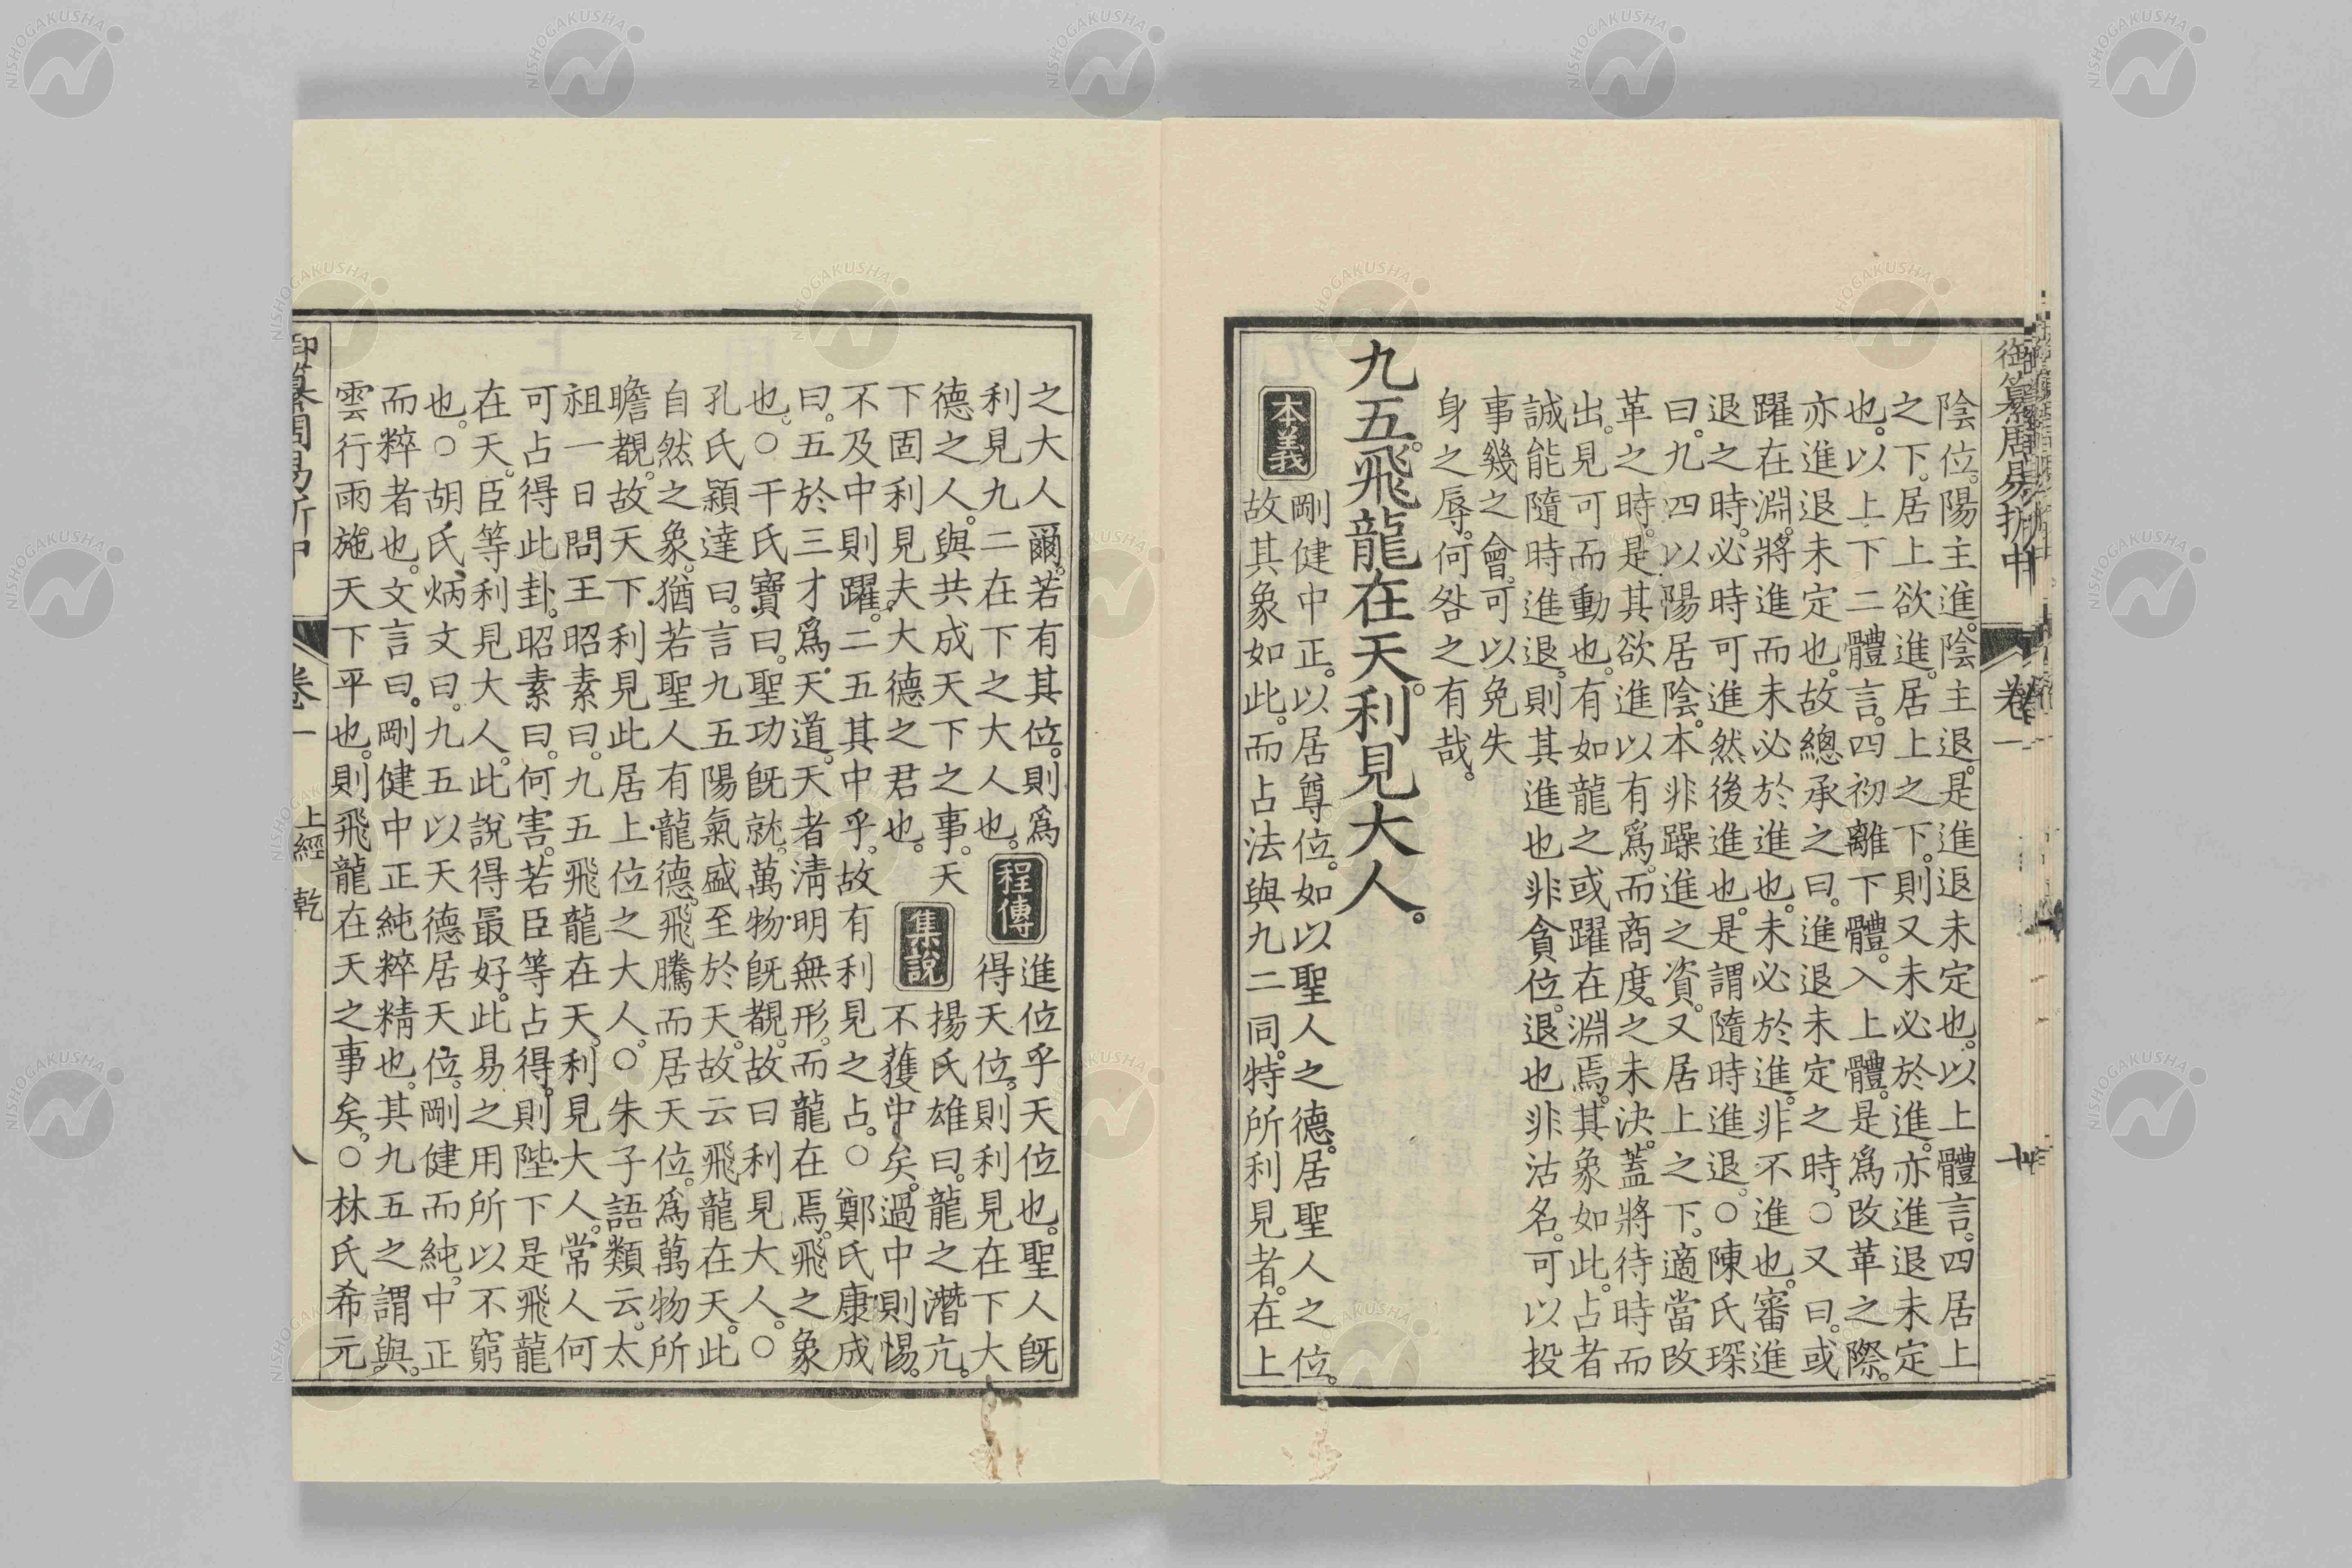 御纂周易折中 卷一
陰位。陽主進。陰主退。是進退未定也。以上體言。四居上
之下。居上欲進。居上之下。則又未必於進。亦進退未定
也。以上下二體言。四初離下體。入上體。是爲改革之際。
亦進退未定也。故總承之曰。進退未定之時。○又曰。或
躍在淵。將進而未必於進也。未必於進。非不進也。審進
退之時。必時可進然後進也。是謂隨時進退。○陳氏琛
曰。九四以陽居陰。本非躁進之資。又居上之下。適當改
革之時。是其欲進以有爲。而商度之未決。蓋將待時而
出。見可而動也。有如龍之或躍在淵焉。其象如此。占者
誠能隨時進退。則其進也非貪位。退也非沽名。可以投
事幾之會。可以免失
身之辱。何咎之有哉。
九五。飛龍在天。利見大人。
本義
剛健中正。以居尊位。如以聖人之德。居聖人之位。
故其象如此。而占法與九二同。特所利見者。在上
之大人爾。若有其位。則爲
利見九二在下之大人也。
程傳
進位乎天位也。聖人旣
得天位。則利見在下大
德之人。與共成天下之事。天
下固利見夫大德之君也。
集說
揚氏雄曰。龍之潛亢。
不獲中矣。過中則惕。
不及中則躍。二五其中乎。故有利見之占。○鄭氏康成
曰。五於三才爲天道。天者淸明無形。而龍在焉。飛之象
也。○干氏寶曰。聖功旣就。萬物旣覩。故曰利見大人。○
孔氏穎達曰。言九五陽氣盛至於天。故云飛龍在天。此
自然之象。猶若聖人有龍德。飛騰而居天位。爲萬物所
瞻覩。故天下利見此居上位之大人。○朱子語類云。太
祖一日問王昭素曰。九五飛龍在天。利見大人。常人何
可占得此卦。昭素曰。何害。若臣等占得。則陛下是飛龍
在天。臣等利見大人。此說得最好。此易之用所以不窮
也。○胡氏炳文曰。九五以天德居天位。剛健而純。中正
而粹者也。文言曰。剛健中正純粹精也。其九五之謂與。
雲行雨施。天下平也。則飛龍在天之事矣。○林氏希元
御纂周易折中 卷一 上經 乾 八
NISHOGAKUSHA